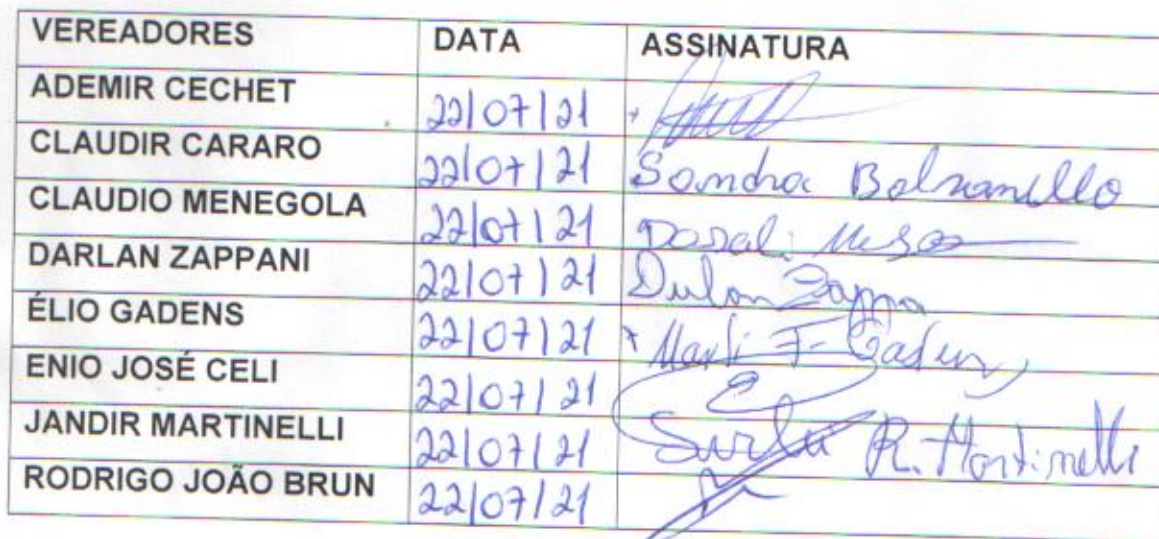 VEREADORES DATA ASSINATURA
ADEMIR CECHET 22/07/21
CLAUDIR CARARO 22/07/21 Sandra Bolzanello
CLAUDIO MENEGOLA 22/07/21
DARLAN ZAPPANI 22/07/21
ÉLIO GADENS 22/07/21 Marli F. Gadens
ENIO JOSÉ CELI 22/07/21
JANDIR MARTINELLI 22/07/21 R. Martinelli
RODRIGO JOÃO BRUN 22/07/21